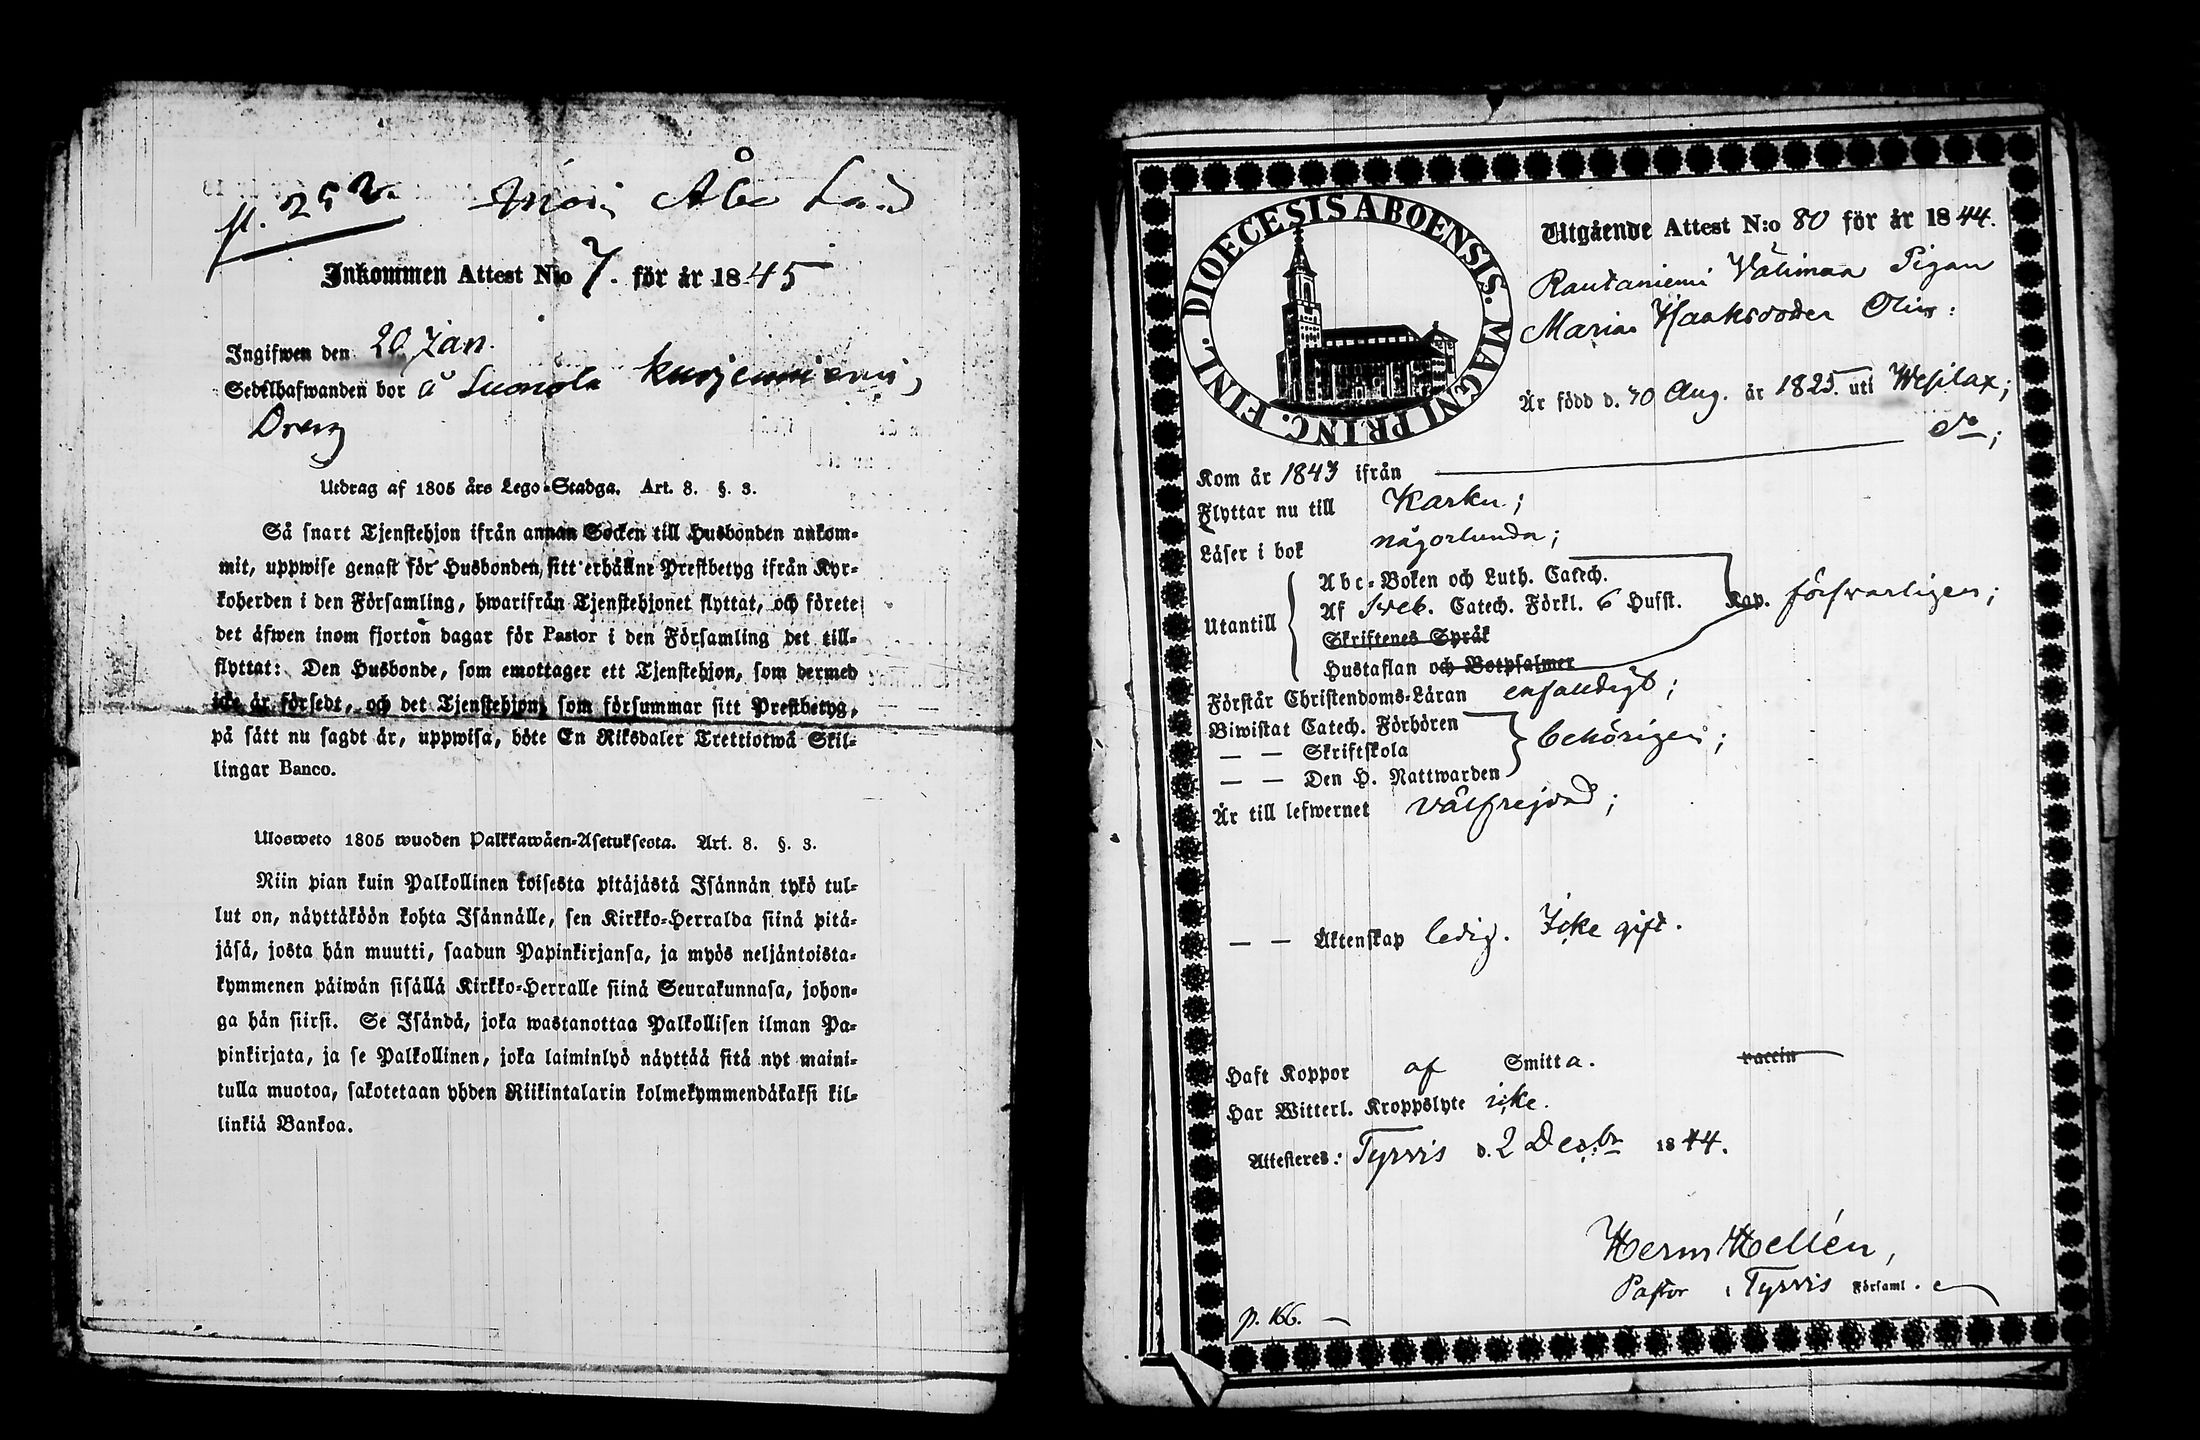 p. 252.
Inkommen Attest N:o 7. för år 1845
Ingifwen den 20 Jan.
Sedelhafwanden bor å Kurjenniemi,
Dreng
Utdrag af 1805 års Lego-Stadga. Art. 8. §. 3.
Så snart Tjenstehjon ifrån annan Socken till Husbonden ankom-
mit, uppwise genast för Husbonden sitt erhållne Prestbetyg ifrån Kyr-
koherden i den Församling, hwarifrån Tjenstehjonet flyttat, och förete
det äfwen inom fjorton dagar för Pastor i den Församling det till-
flyttat: Den Husbonde, som emottager ett Tjenstehjon, som dermed
icke är försedt, och det Tjenstehjon, som försummar sitt Prestbetyg,
på sätt nu sagdt är, uppwisa, böte En Riksdaler Trettiotwå Skil-
lingar Banco.
Ulosweto 1805 wuoden Palkkawäen-Asetuksesta. Art. 8. §. 3.
Niin pian kuin Palkollinen toisesta pitäjästä Isännän tykö tul-
lut on, näyttäköön kohta Isännälle, sen Kirkko-Herralda siinä pitä-
jäsä, josta hän muutti, saadun Papinkirjansa, ja myös neljäntoista-
kymmenen päiwän sisällä Kirkko-Herralle siinä Seurakunnasa, johon-
ga hän siirsi. Se Isändä, joka wastanottaa Palkollisen ilman Pa-
pinkirjata, ja se Palkollinen, joka laiminlyö näyttää sitä nyt maini-
tulla muotoa, sakotetaan yhden Riikintalarin kolmekymmendäkaksi kil-
linkiä Bankoa.
DIOECESIS ABOENSIS. MAGNI PRINC. FINL.
Utgående Attest N:o 80 för år 1844.
Rautaniemi Välimaa Pigan
Maria
Är född d. 30 Aug. år 1825. uti Wesilax;
Kom år 1843 ifrån do;
Flyttar nu till Karku;
Läser i bok någorlunda;
Utantill
Abc-Boken och Luth. Catech.
Af Sveb. Catech. Förkl. 6 Hufst. Kap. försvarligen;
Skriftenes Språk
Hustaflan och Botpsalmer
Förstår Christendoms-Läran enfaldigt;
Biwistat Catech. Förhören
— — Skriftskola behörigen;
— — Den H. Nattwarden
Är till lefwernet välfrejdad;
— — Äktenskap ledig. Icke gift.
Haft Koppor af Smitta. vaccin
Har Witterl. Kroppslyte icke.
Attesteres: Tyrvis d. 2 Decbr 1844.
Herm Hellén,
Pastor i Tyrvis Församl.
p. 166.